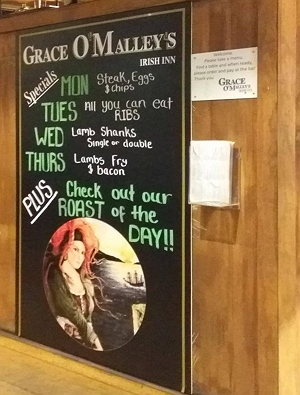 GRACE O'MALLEY'S
IRISH INN
Specials
MON Steak, Eggs
& Chips
TUES All you can eat
RIBS
WED Lamb Shanks
Single or double
THURS Lambs Fry
& bacon
PLUS Check out our
ROAST of the
DAY!!
Please take a menu,
find a table and when ready,
please order and pay at the bar
Thank you
GRACE
O'MALLEY'S